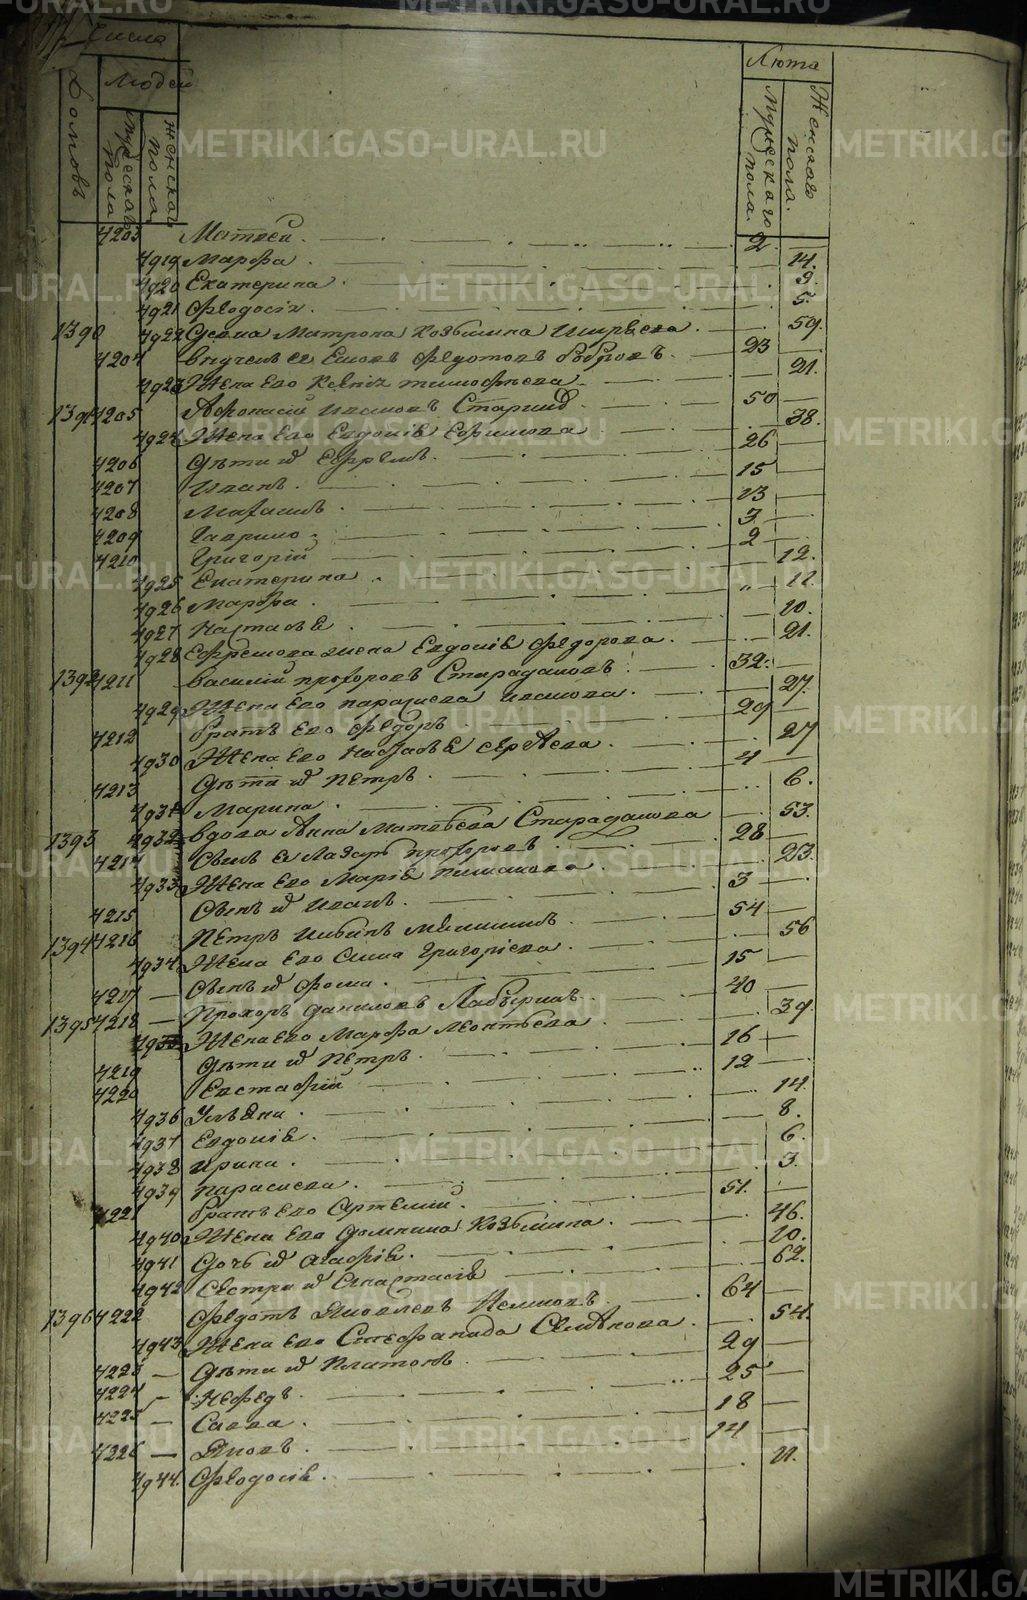 Числа
Людей
Домовъ
Мужеска пола
Женска пола
Лета
Мужескаго пола.
Женскаго пола.
4203 Матвей 2
4919 Марфа 14.
4920 Екатерина 9.
4921 Федосия 5.
1390 4922 Матрона Козьмина 59.
4204 Федотовъ Бобровъ 23
4923 Жена его Тимофеева 21.
1391 4205 Афонасий Ивановъ 50
4924 Жена его Евдокия Ефимова 38.
4206 Дети их Ефремъ 26
4207 Иванъ 15
4208 13
4209 Гаврило 3
4210 Григорий 2
4925 Екатерина 12.
4926 Марфа 11.
4927 Настасья 10.
4928 Ефремова жена Евдокия Федорова 21.
1392 4211 Василий Прохоровъ Старадамовъ 32.
4929 Жена его Парасковья Иванова 27.
4212 Братъ его Федоръ 29
4930 Жена его Настасья 27
4213 Дети их Петръ 4
4931 Марина 6.
1393 4932 Вдова Анна Матвеева Старадамова 53.
4214 Сынъ ее Лазарь Прохоровъ 28
4933 Жена его Мария 23.
4215 Сынъ их Иванъ 3
1394 4216 Петръ 54
4934 Жена его Григориева 56
4217 Сынъ их Фома 15
1395 4218 Прохоръ Даниловъ 40
4935 Жена его Марфа Леонтьева 39.
4219 Дети их Петръ 16
4220 Евстафий 12
4936 Ульяна 14.
4937 Евдокия 8.
4938 Ирина 6.
4939 Парасковья 3.
4221 Братъ его Артемий 51.
4940 Жена его Домнина Козьмина 46.
4941 Дочь их Агафия 10.
4942 Сестра их Анастасия 62.
1396 4222 Федотъ Яковлевъ 64
4943 Жена его Стефанида 54.
4223 Дети их Платонъ 29
4224 Нефедъ 25
4225 Савва 18
4226 Яковъ 14
4944. Федосия 11.
METRIKI.GASO-URAL.RU